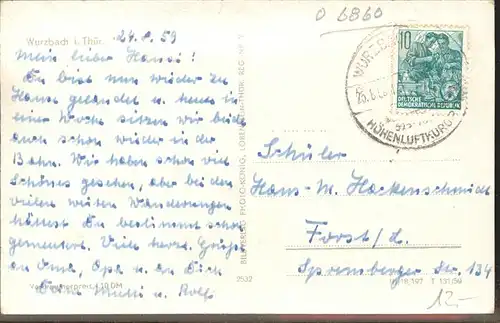 Wurzbach i. Thür. 24.6.59
Mein lieber Hansi!
Du bist nun wieder zu
Hause gelandet u. heute in
einer Woche sitzen wir beide
auch schon wieder in der
Bahn. Wir haben schon viel
Schönes gesehen, aber bei den
vielen weiten Wanderungen
hättest Du bestimmt schon
gemeutert. Viele herzl. Grüße
an Oma, Opa u. an Dich
Deine Mutti u. Rolf
Verbraucherpreis: 0,20 DM
2532
BILD UND VERLAG PHOTO-KÖNIG, LOBENSTEIN-THÜR. REG.
0 6860
10
DEUTSCHE
DEMOKRATISCHE REPUBLIK
HÖHENLUFTKURORT
Schüler
Hans-M. Hackenschmidt
Forst/L.
Spremberger Str. 134
T 131/59
12,-